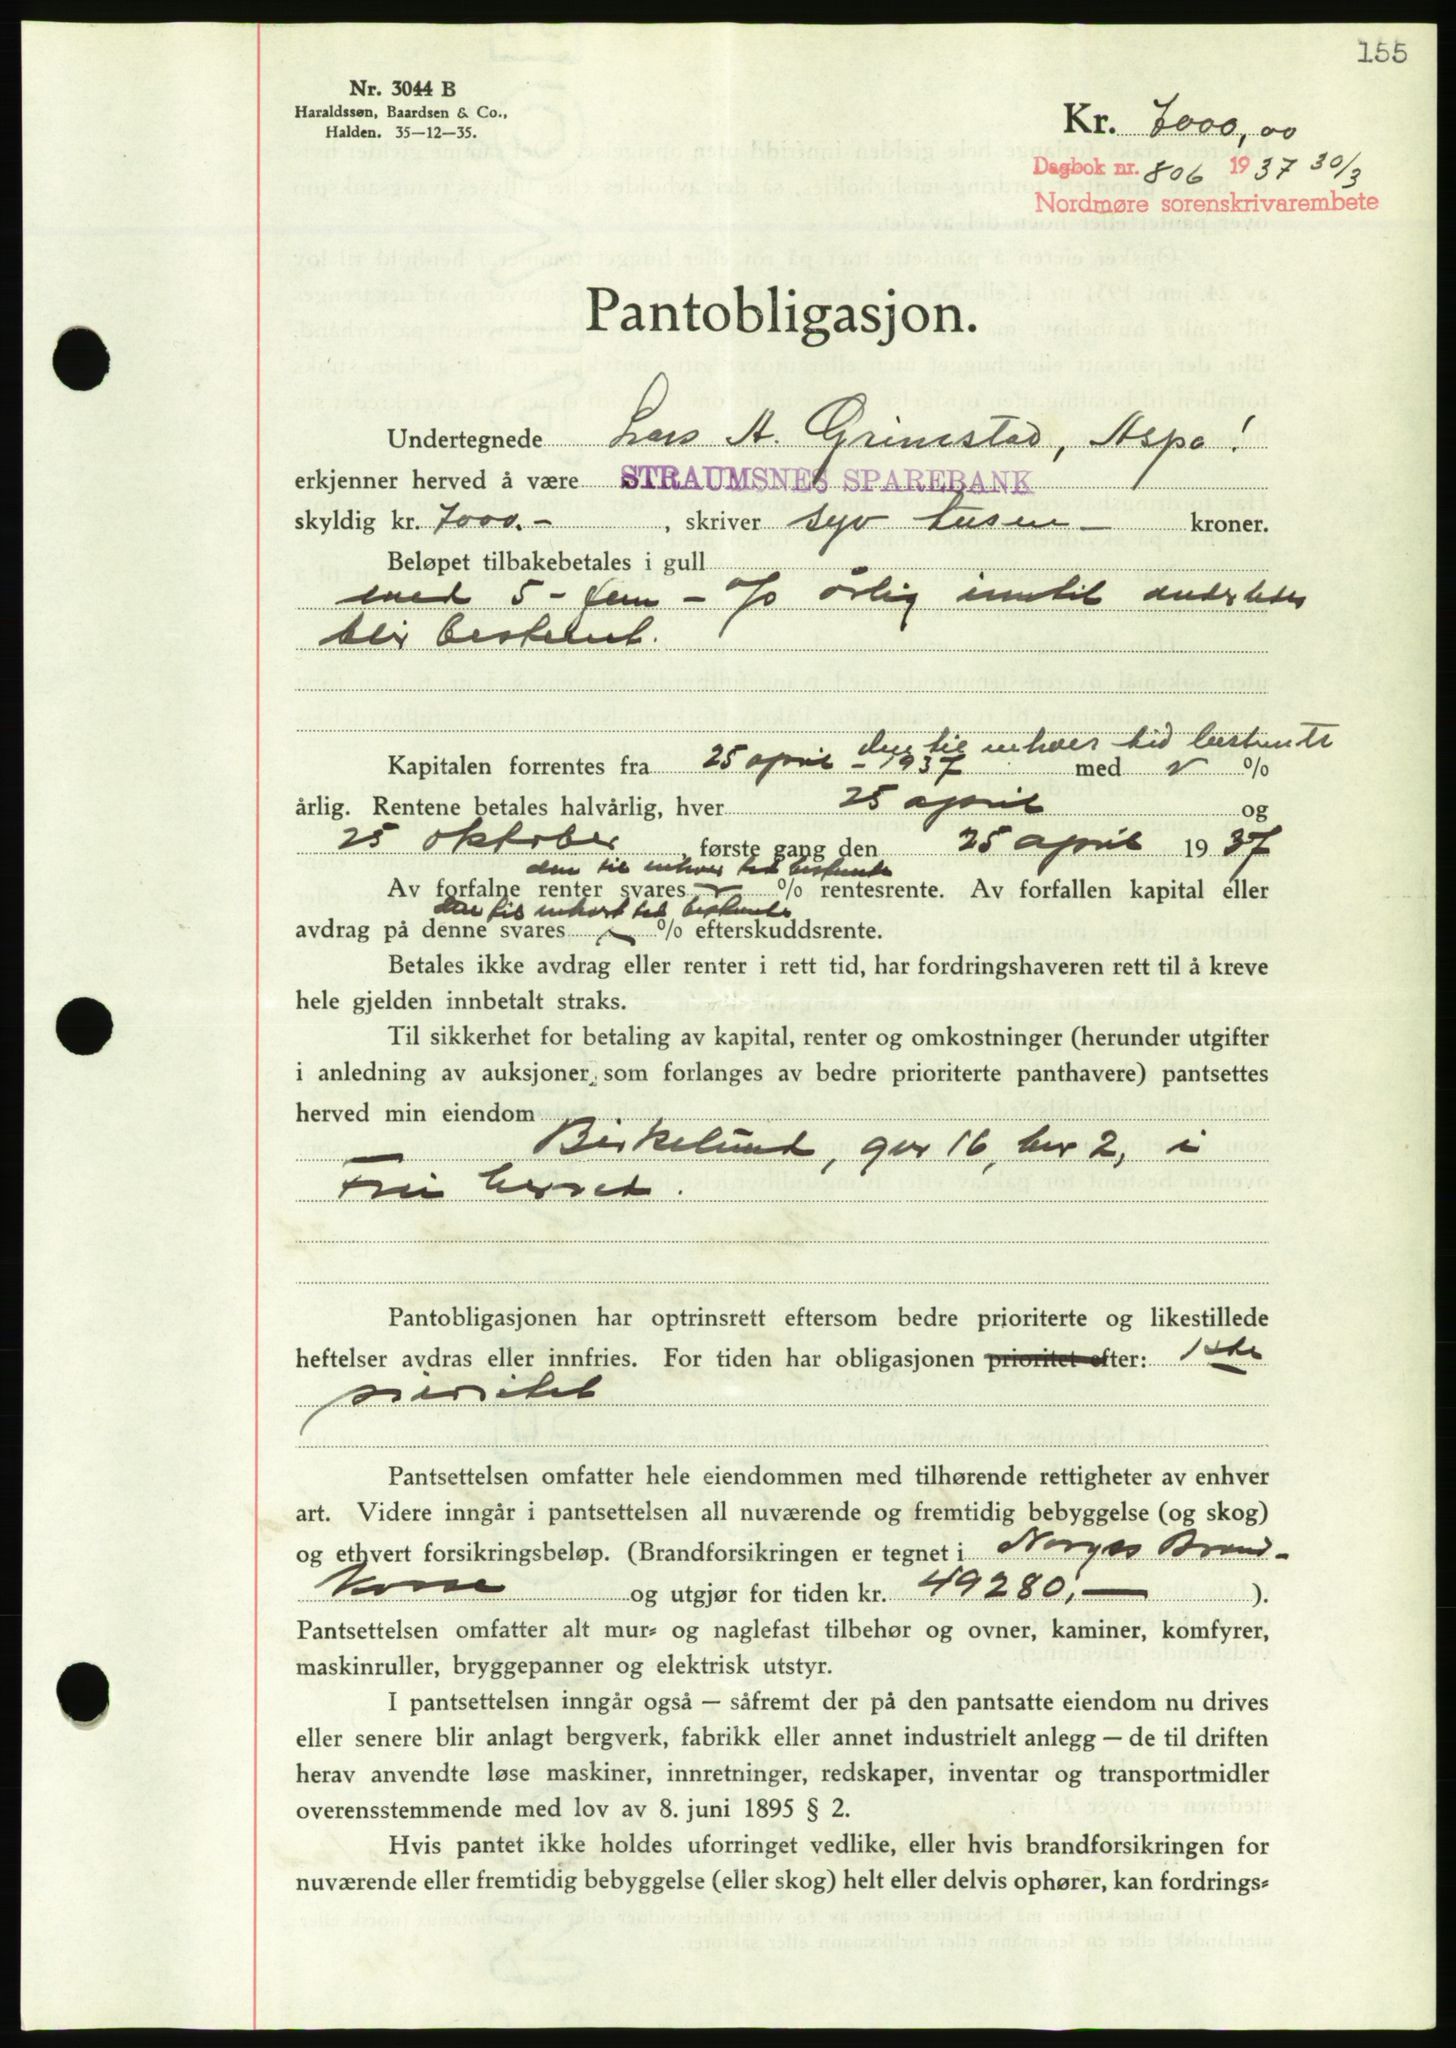 155
Nr. 3044 B
Haraldssøn, Baardsen & Co.,
Halden. 35—12—35.
Kr. 7000,00
Dagbok nr. 806 1937 30/3
Nordmøre sorenskrivarembete
Pantobligasjon.
Undertegnede Lars A. Grimstad, Aspa!
erkjenner herved å være STRAUMSNES SPAREBANK
skyldig kr. 7000.- , skriver syv tusen - kroner.
Beløpet tilbakebetales i gull
med 5 - fem - % årlig inntil anderledes
blir bestemt.
den til enhver tid bestemte
Kapitalen forrentes fra 25 april - 1937 med %
årlig. Rentene betales halvårlig, hver 25 april og
25 oktober, første gang den 25 april 1937
den til enhver tid bestemte
Av forfalne renter svares % rentesrente. Av forfallen kapital eller
den til enhver tid bestemte
avdrag på denne svares % efterskuddsrente.
Betales ikke avdrag eller renter i rett tid, har fordringshaveren rett til å kreve
hele gjelden innbetalt straks.
Til sikkerhet for betaling av kapital, renter og omkostninger (herunder utgifter
i anledning av auksjoner, som forlanges av bedre prioriterte panthavere) pantsettes
herved min eiendom
Birkelund, gnr 16, bnr 2, i
Frei herred.
Pantobligasjonen har optrinsrett eftersom bedre prioriterte og likestillede
heftelser avdras eller innfries. For tiden har obligasjonen prioritet efter: 1ste
prioritet
Pantsettelsen omfatter hele eiendommen med tilhørende rettigheter av enhver
art. Videre inngår i pantsettelsen all nuværende og fremtidig bebyggelse (og skog)
og ethvert forsikringsbeløp. (Brandforsikringen er tegnet i Norges Brand-
kasse og utgjør for tiden kr. 49280,— ).
Pantsettelsen omfatter alt mur- og naglefast tilbehør og ovner, kaminer, komfyrer,
maskinruller, bryggepanner og elektrisk utstyr.
I pantsettelsen inngår også — såfremt der på den pantsatte eiendom nu drives
eller senere blir anlagt bergverk, fabrikk eller annet industrielt anlegg — de til driften
herav anvendte løse maskiner, innretninger, redskaper, inventar og transportmidler
overensstemmende med lov av 8. juni 1895 § 2.
Hvis pantet ikke holdes uforringet vedlike, eller hvis brandforsikringen for
nuværende eller fremtidig bebyggelse (eller skog) helt eller delvis ophører, kan fordrings-